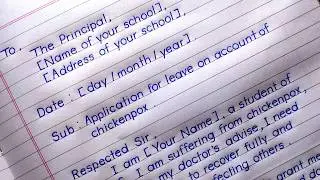 To, The Principal,
[Name of your school],
[Address of your school],
Date : [day/month/year]
Sub : Application for leave on account of
chickenpox.
Respected Sir,
I am [Your Name], a student of
I am suffering from chickenpox,
my doctor's advise, I need
to recover fully and
fecting others.
grant me